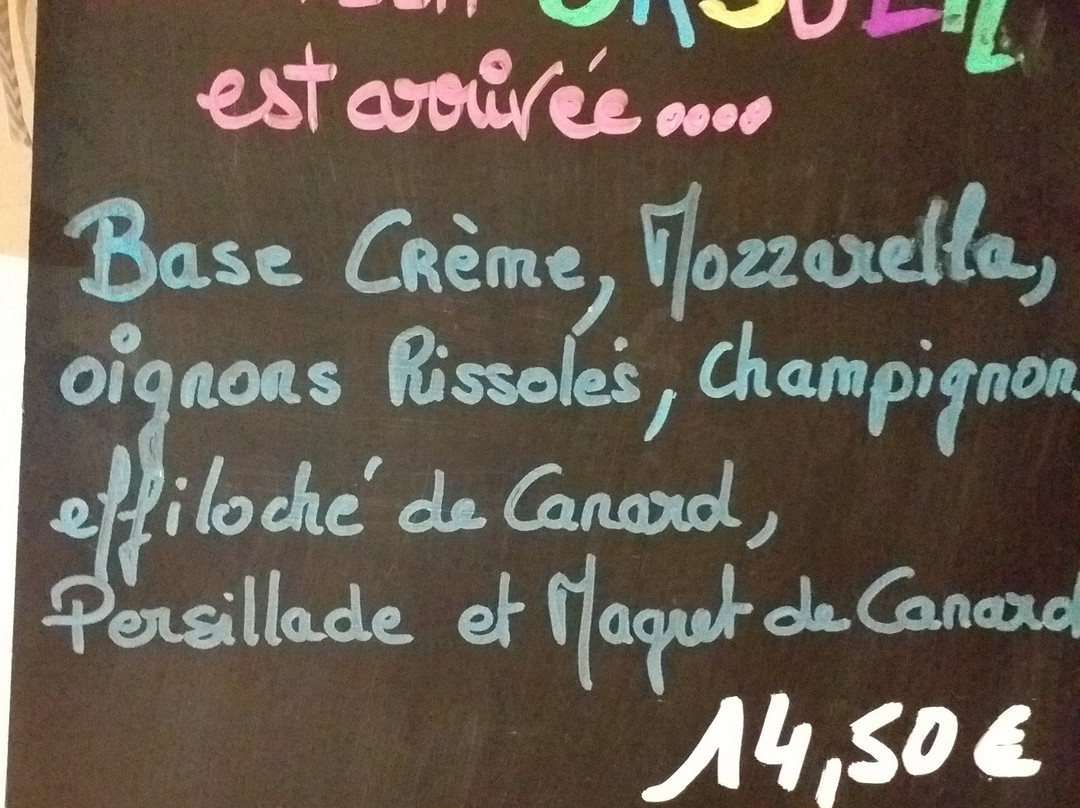 est arrivée....
Base Crème, Mozzarella,
oignons Rissolés, Champignons
effiloché de Canard,
Persillade et Magret de Canard
14,50€